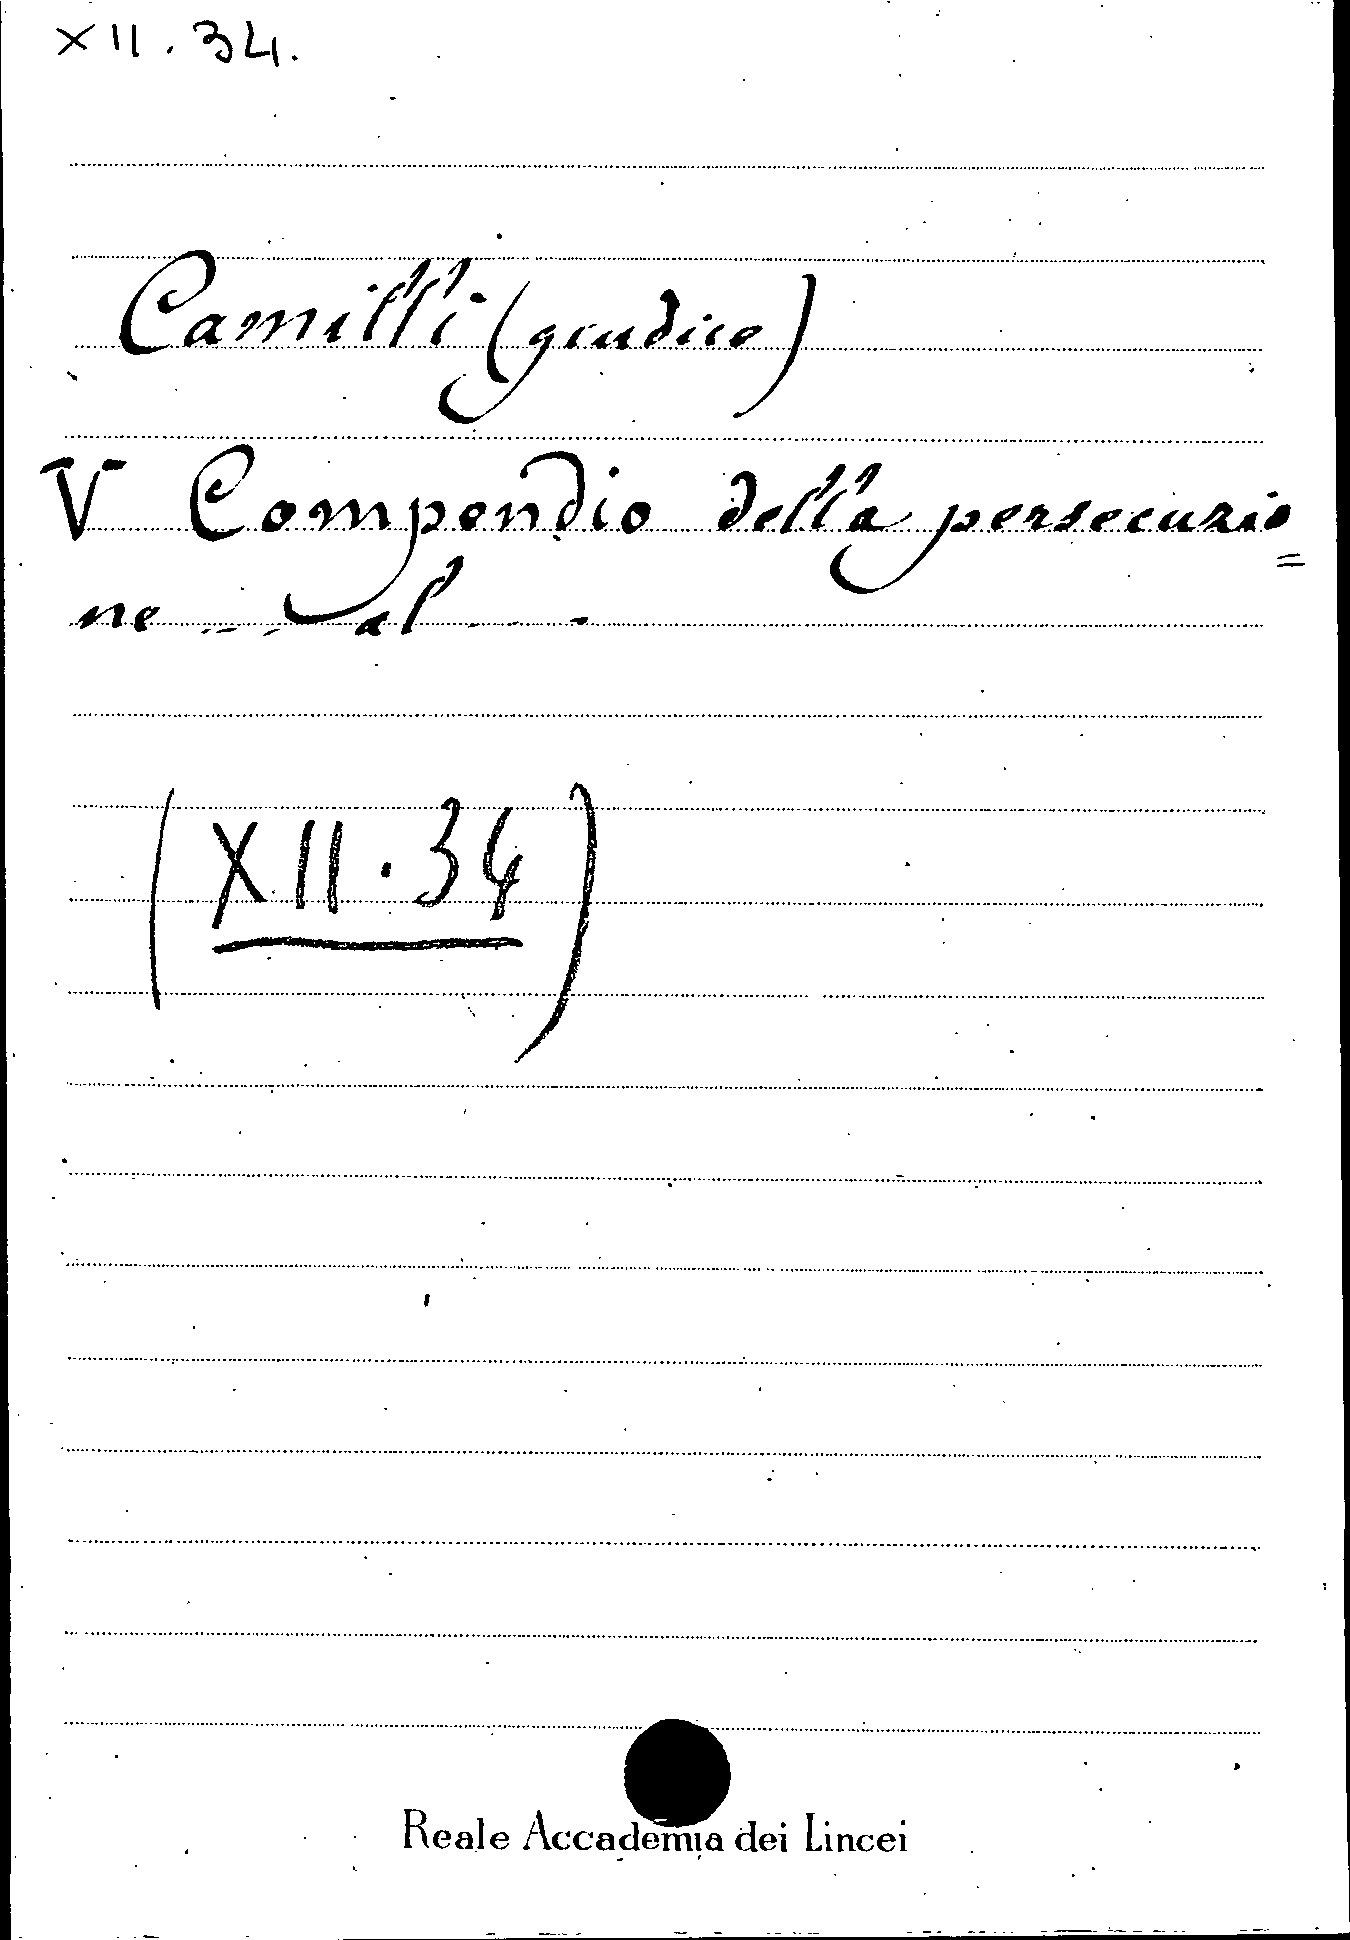 XII. 34.
Camilli (giudice)
V Compendio della persecuzio=
ne .... al ....
(XII. 34)
Reale Accademia dei Lincei